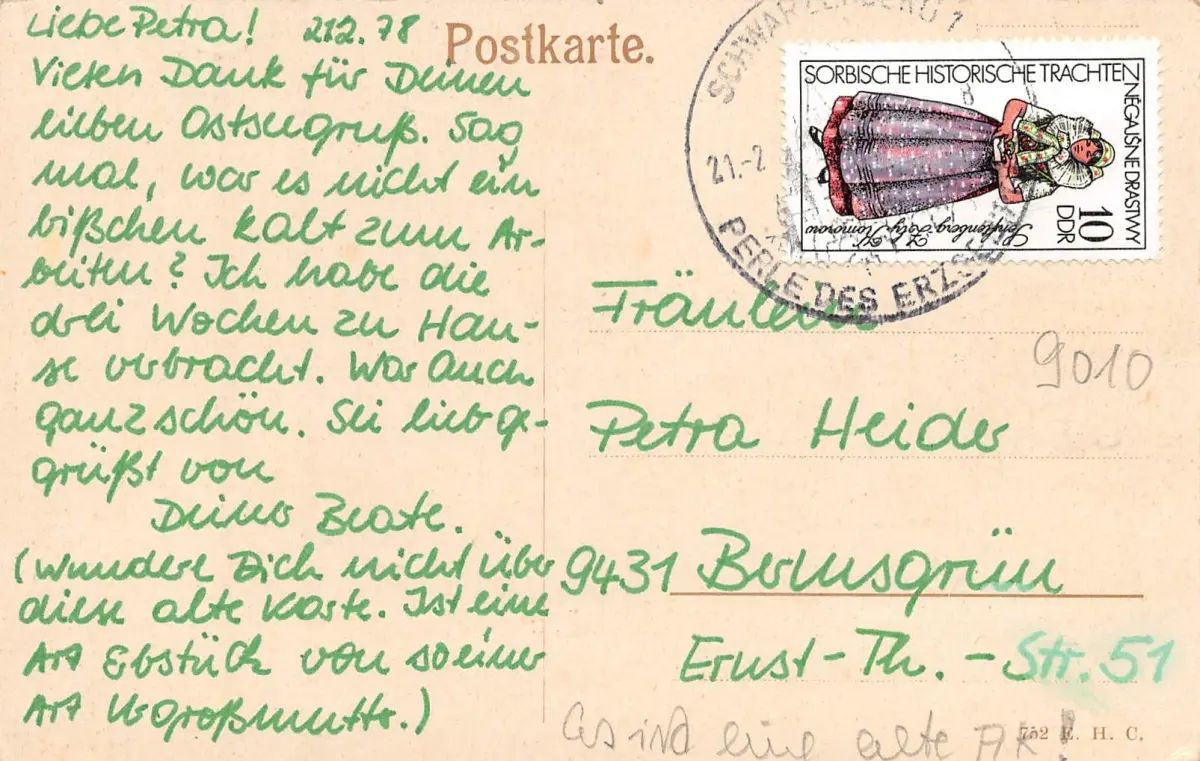 Liebe Petra! 21.2.78
Vielen Dank für Deinen
lieben Ostseegruß. Sag
mal, war es nicht ein
bißchen kalt zum Ar-
beiten? Ich habe die
drei Wochen zu Hau-
se verbracht. War Auch
ganz schön. Sei lieb ge-
grüßt von
Deiner Beate.
(wundere Dich nicht über
diese alte Karte. Ist eine
Art Erbstück von so einer
Art Urgroßmutter.)
Postkarte.
SCHWARZENBERG 1
21.-2
PERLE DES ERZ
SORBISCHE HISTORISCHE TRACHTEN
NĚGAJŠNE DRASTWY
10
DDR
Senftenberg, Zły Komorow
Fräulein
9010
Petra Heider
9431 Bermsgrün
Ernst-Th.-Str. 51
Es ist eine alte AK!
752 E. H. C.